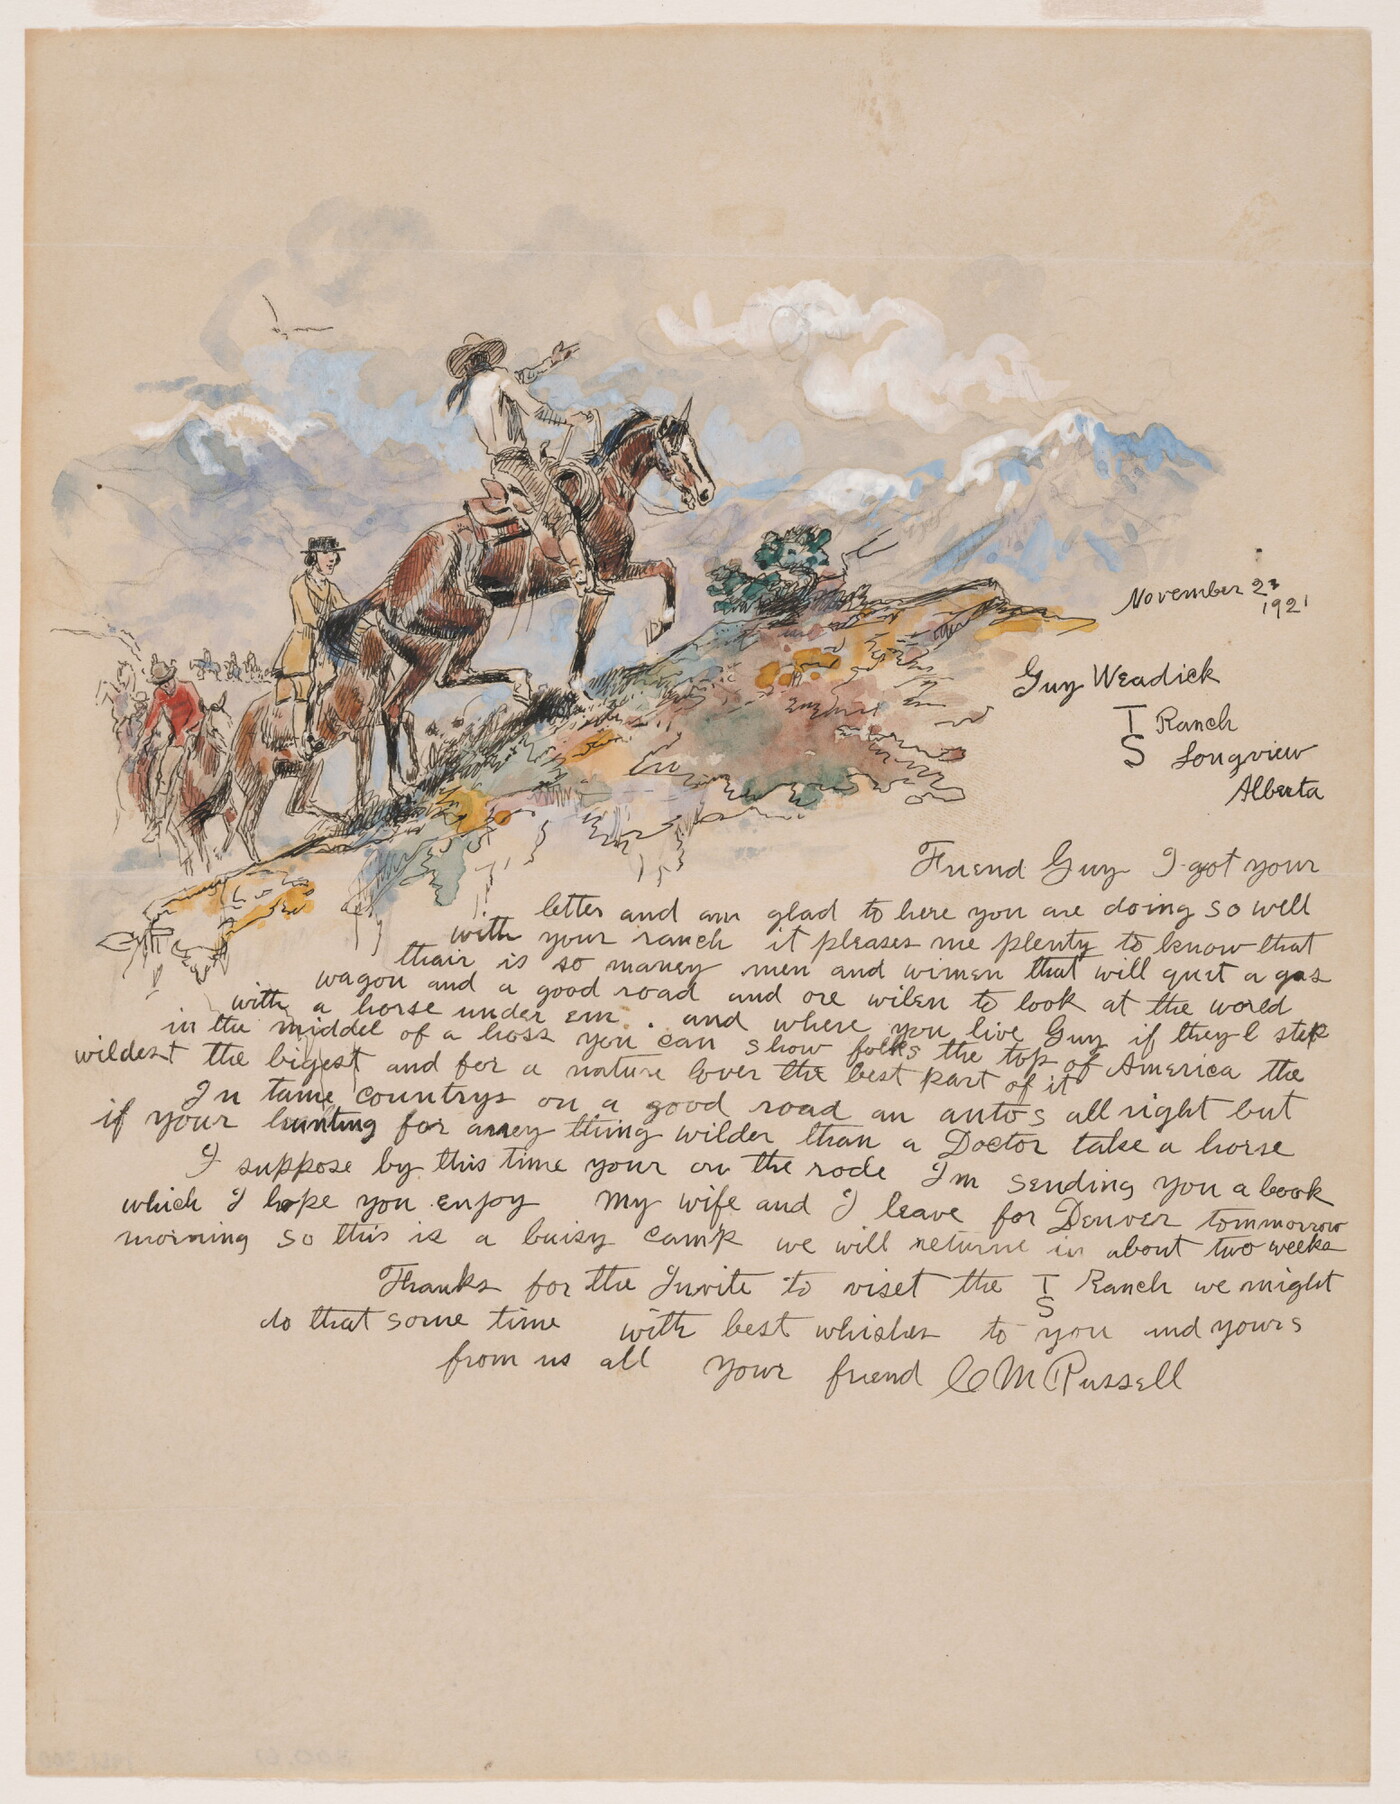 November 23
1921
Guy Weadick
T Ranch
S Longview
Alberta
Friend Guy I got your
letter and am glad to here you are doing so well
with your ranch it pleases me plenty to know that
thair is so maney men and wimen that will quit a gas
wagon and a good road and are wilen to look at the world
with a horse under em. and where you live Guy if they l step
in the middel of a hoss you can show folks the top of America the
wildest the bigest and for a nature lover the best part of it
In tame countrys on a good road an autos all right but
if your hunting for aney thing wilder than a Doctor take a horse
I suppose by this time your on the rode Im sending you a book
which I hope you enjoy My wife and I leave for Denver tommorrow
morning so this is a buisy camp we will returne in about two weeks
Thanks for the Invite to viset the T S Ranch we might
do that some time with best whishes to you and yours
from us all your friend CM Russell